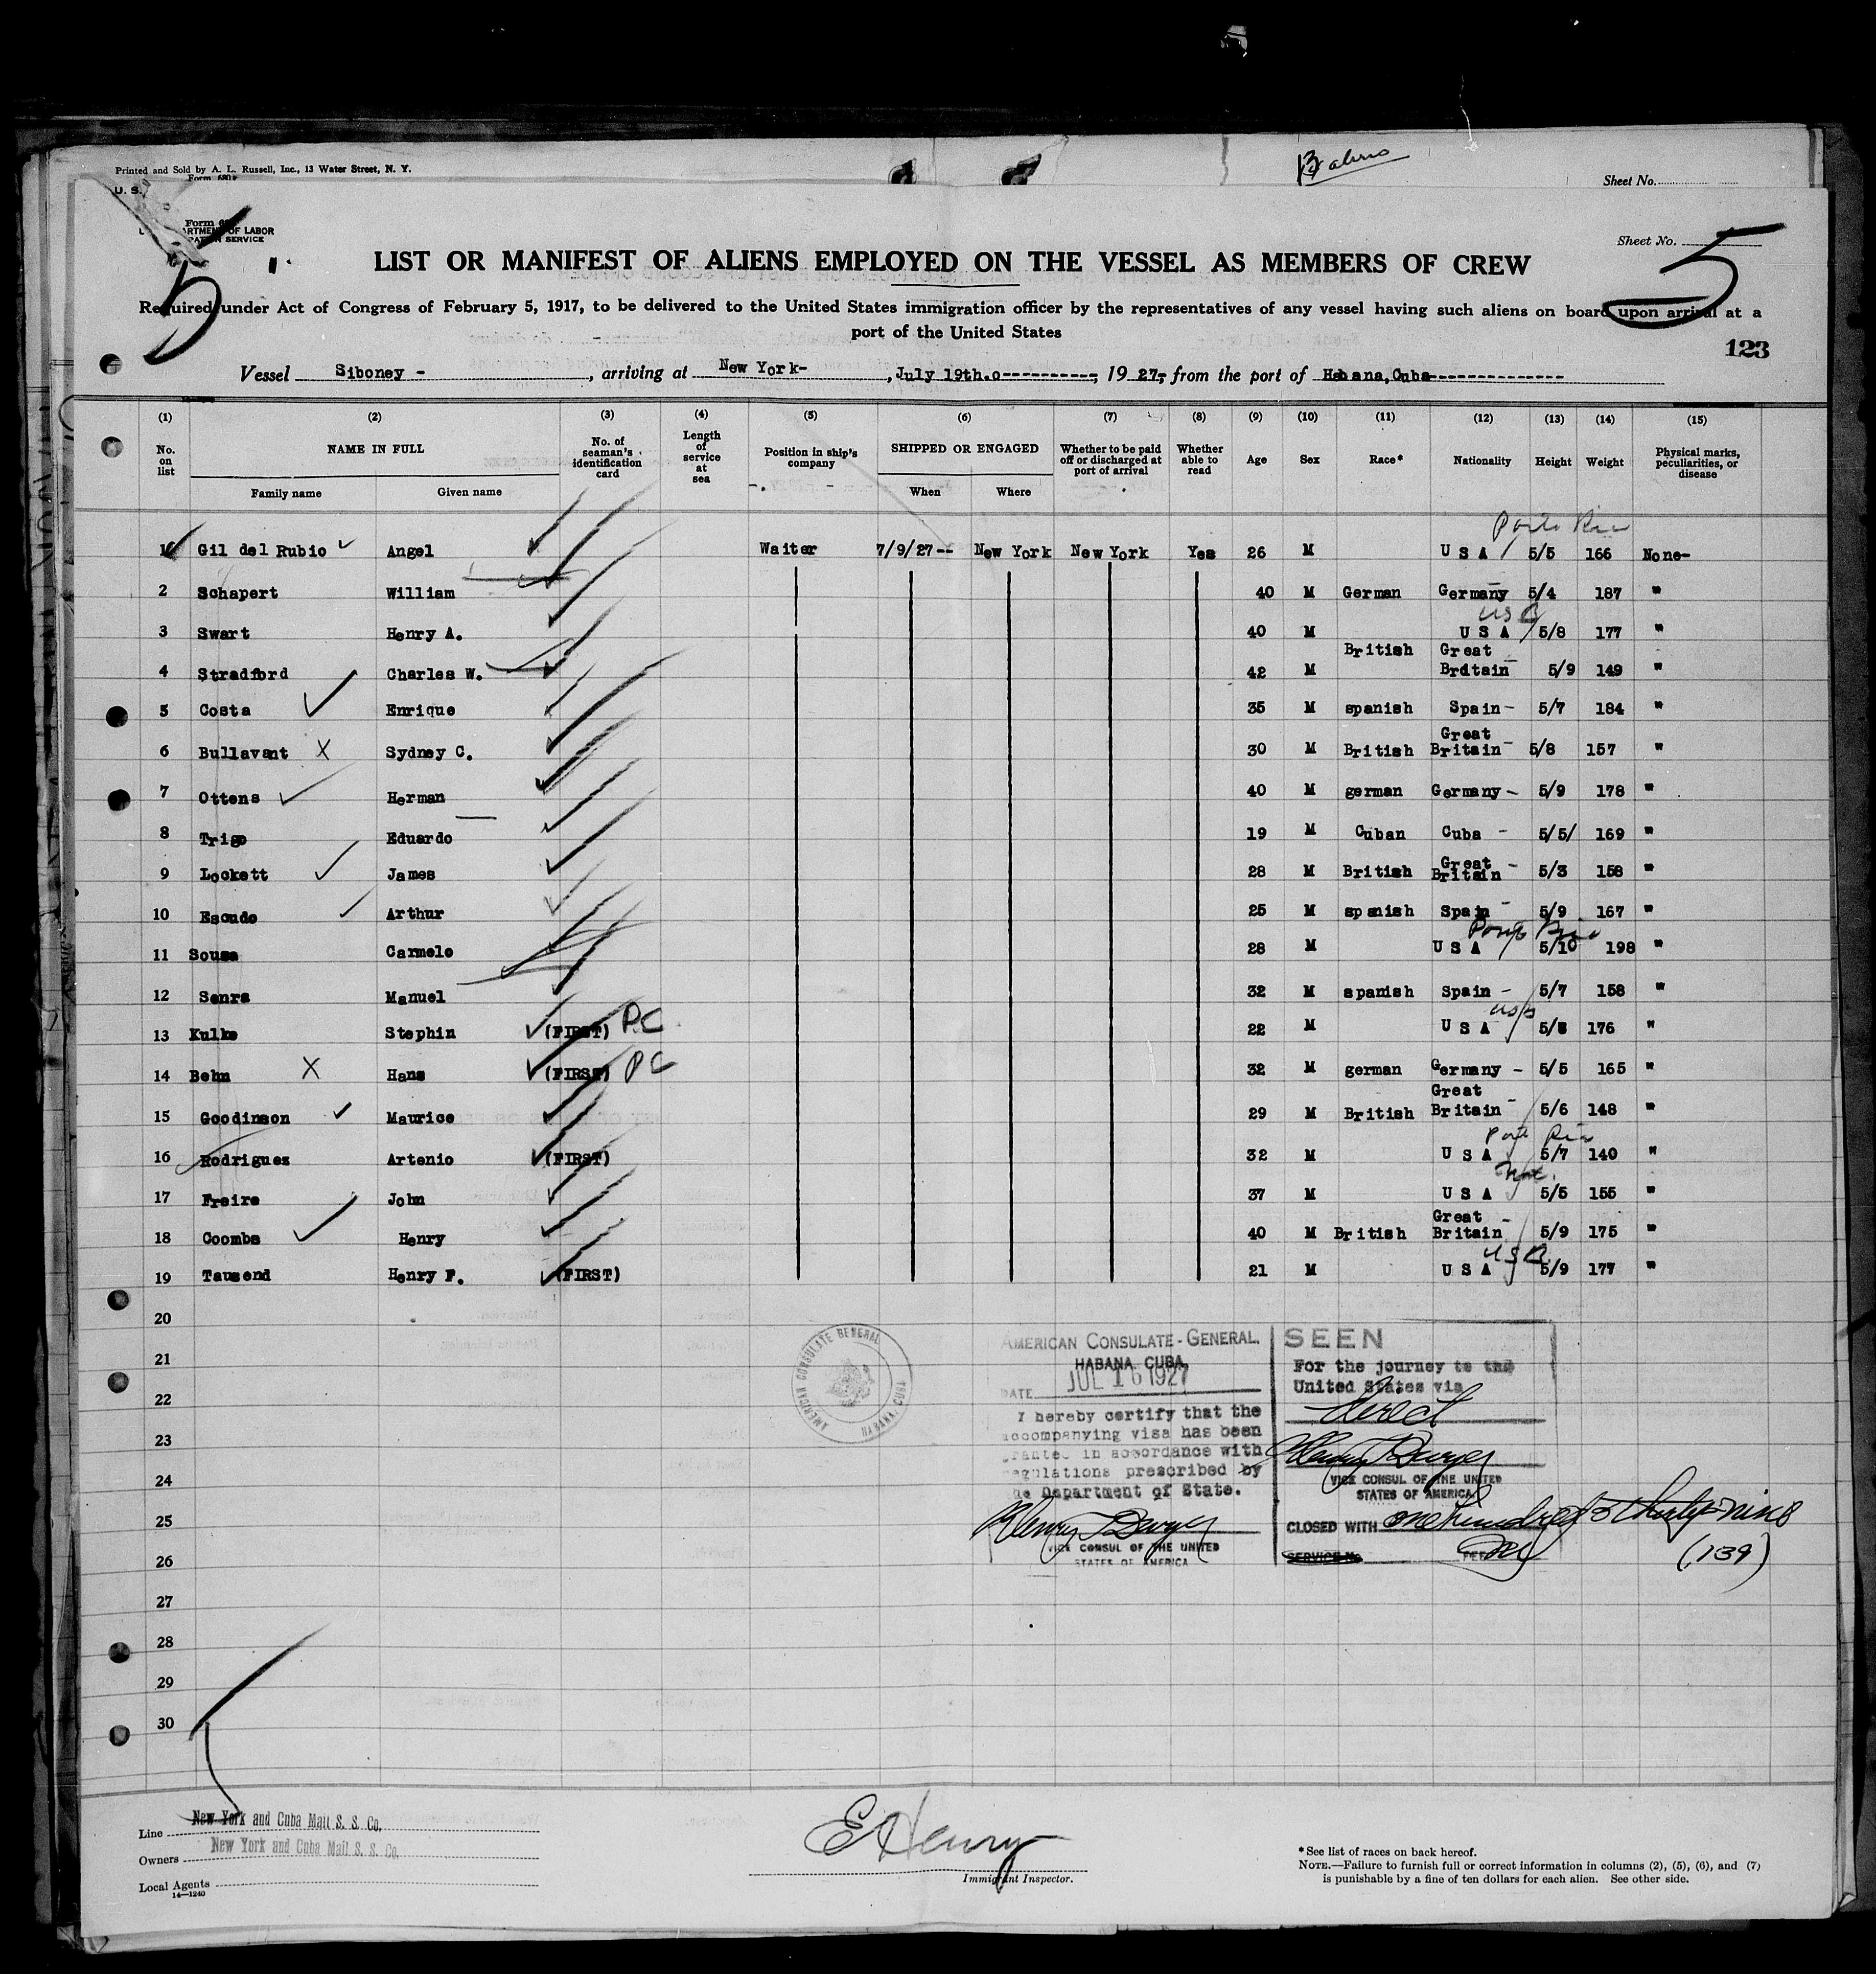 Printed and Sold by A. L. Russell, Inc., 13 Water Street, N. Y.
Form 680
U. S.
Sheet No.
5
Form
OF LABOR
SERVICE
Sheet No. 5
LIST OR MANIFEST OF ALIENS EMPLOYED ON THE VESSEL AS MEMBERS OF CREW
Required under Act of Congress of February 5, 1917, to be delivered to the United States immigration officer by the representatives of any vessel having such aliens on board upon arrival at a
port of the United States
123
Vessel Siboney - , arriving at New York- , July 19th.o----------, 19 27, from the port of Habana,Cuba--------------
(1) (2) (3) (4) (5) (6) (7) (8) (9) (10) (11) (12) (13) (14) (15)
No. on list NAME IN FULL Family name Given name No. of seaman's identification card Length of service at sea Position in ship's company SHIPPED OR ENGAGED When Where Whether to be paid off or discharged at port of arrival Whether able to read Age Sex Race* Nationality Height Weight Physical marks, peculiarities, or disease
Porto Rico
1 Gil del Rubio Angel Waiter 7/9/27-- New York New York Yes 26 M U S A 5/5 166 None-
2 Schapert William 40 M German Germany 5/4 187 "
USA
3 Swart Henry A. 40 M U S A 5/8 177 "
4 Stradford Charles W. 42 M British Great Britain 5/9 149 "
5 Costa Enrique 35 M spanish Spain- 5/7 184 "
6 Bullavant X Sydney C. 30 M British Great Britain- 5/8 157 "
7 Ottens Herman 40 M german Germany- 5/9 178 "
8 Trigo Eduardo 19 M Cuban Cuba - 5/5/ 169 "
9 Lockett James 28 M British Great Britain - 5/3 158 "
10 Escudo Arthur 25 M spanish Spain - 5/9 167 "
Porto Rico
11 Sousa Carmelo 28 M U S A 5/10 198 "
12 Senra Manuel 32 M spanish Spain - 5/7 158 "
USA
13 Kulke Stephin (FIRST) PC 22 M U S A 5/8 176 "
14 Behn X Hans (FIRST) PC 32 M german Germany - 5/5 165 "
15 Goodinson Maurice 29 M British Great Britain - 5/6 148 "
Porto Rico
16 Rodriguez Artenio (FIRST) 32 M U S A 5/7 140 "
Nat.
17 Freire John 37 M U S A 5/5 155 "
18 Coombs Henry 40 M British Great Britain - 5/9 175 "
USA
19 Tausend Henry F. (FIRST) 21 M U S A 5/9 177 "
20
21
22
23
24
25
26
27
28
29
30
AMERICAN CONSULATE GENERAL HABANA, CUBA
AMERICAN CONSULATE-GENERAL.
HABANA CUBA,
DATE JUL 16 1927
I hereby certify that the
accompanying visa has been
granted in accordance with
regulations prescribed by
the Department of State.
Henry T Dwyer
VICE CONSUL OF THE UNITED
STATES OF AMERICA
SEEN
For the journey to the
United States via
direct
Henry T Dwyer
VICE CONSUL OF THE UNITED
STATES OF AMERICA.
CLOSED WITH one hundred & thirty-nine
SERVICE No. FEE
(139)
Line New York and Cuba Mail S. S. Co.
Owners New York and Cuba Mail S. S. Co.
Local Agents
14—1240
E Henry
Immigrant Inspector.
* See list of races on back hereof.
NOTE.—Failure to furnish full or correct information in columns (2), (5), (6), and (7)
is punishable by a fine of ten dollars for each alien. See other side.